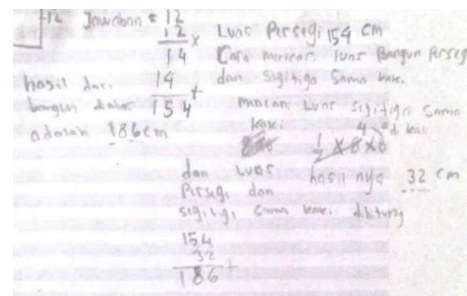 12 Jawaban = 12
12 x
14
14 +
154
Luas Persegi 154 cm
Cara mencari luas Bangun Persegi
dan Sigitiga Sama kaki.
hasil dari
bangun datar
adalah 186cm
mencari Luas sigitiga Sama
kaki
4
1/2 x 8 x 8
dan Luas hasil nya 32 cm
Persegi dan
segitiga sama kaki dihitung
154
32 +
186